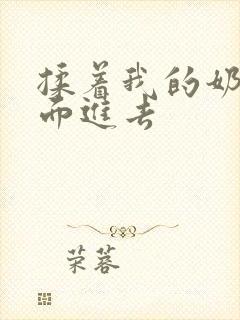 揉着我的奶
而進去
荣蓉